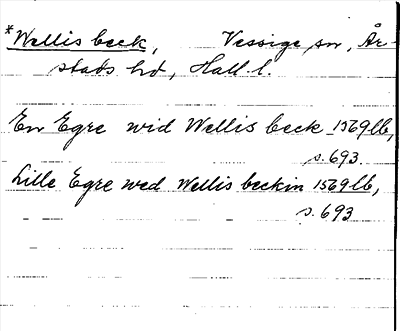 *Wellis beck, Vessige sn, År-
stads hd, Hall. l.
En Egre wid Wellis beck 1569 lb,
s. 693.
Lille Egre wed Wellis beckin 1569 lb,
s. 693